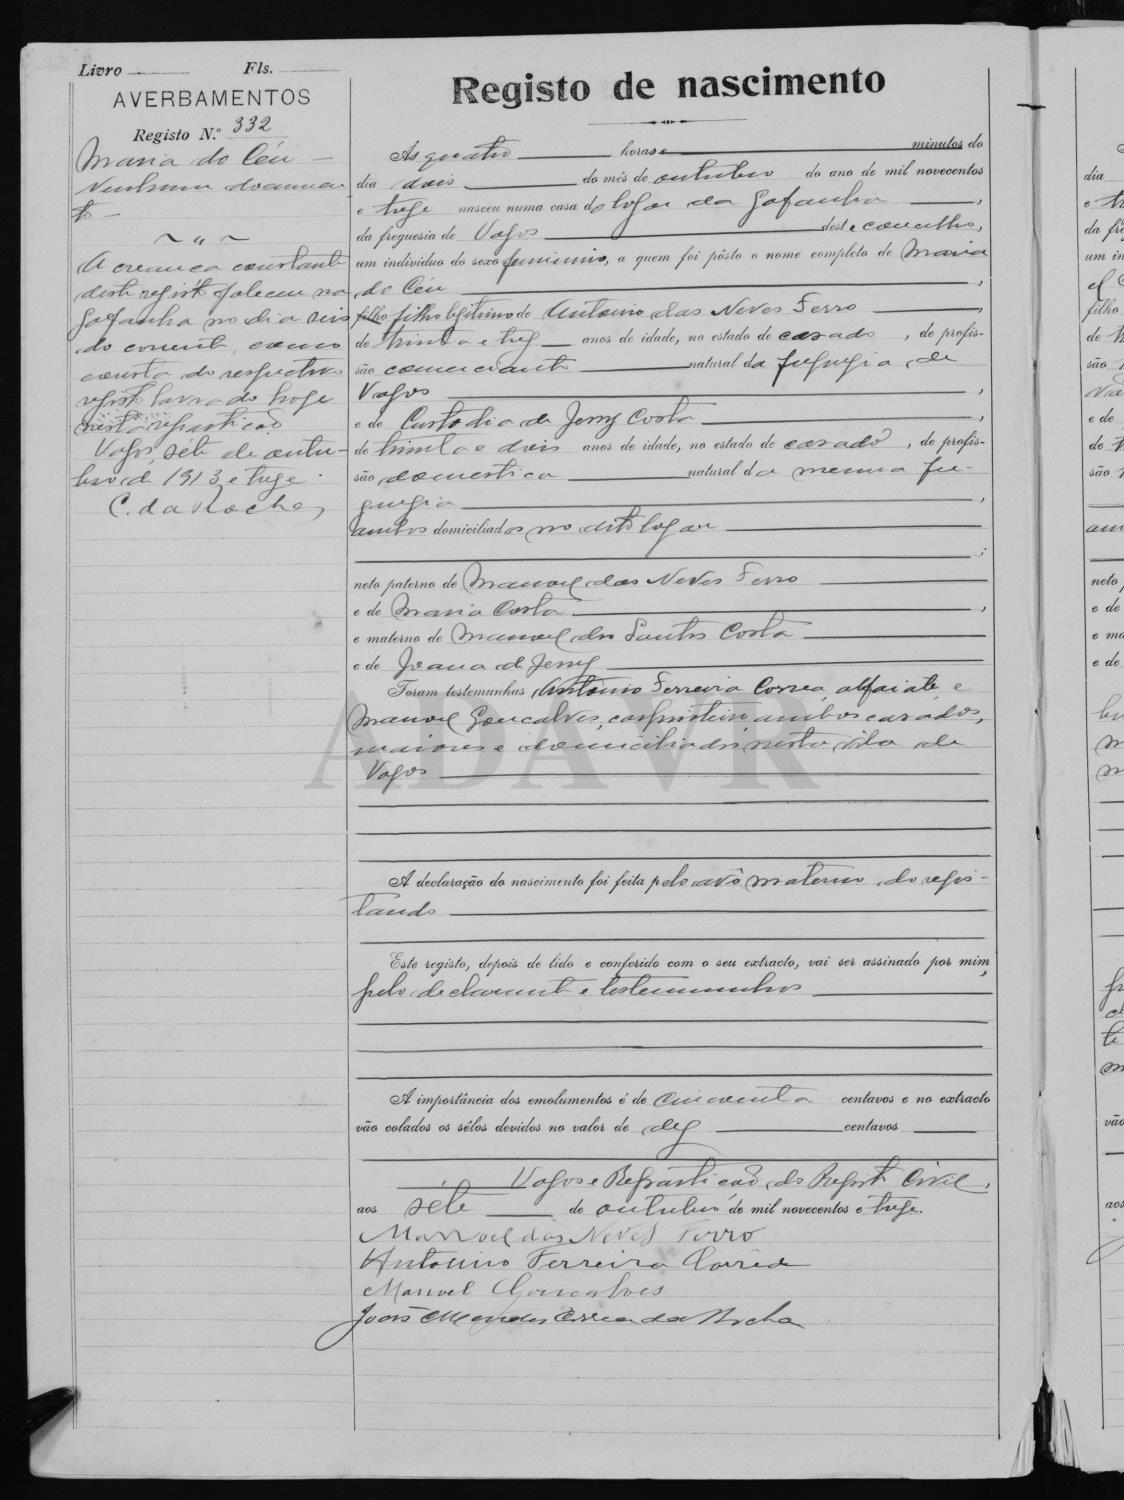 Livro Fls.
AVERBAMENTOS
Registo N.º 332
Maria do Céu
Nenhum documen
to
A creança constante
deste registo faleceu na
Gafanha no dia seis
do corrente, como
consta do respectivo
registo lavrado hoje
nesta repartição
Vagos, sete de outu-
bro de 1913 e treze
C. da Rocha
Registo de nascimento
Ás quatro horas e minutos do
dia dois do mês de outubro do ano de mil novecentos
e treze nasceu numa casa do logar da Gafanha,
da freguesia de Vagos deste concelho,
um indivíduo do sexo feminino, a quem foi pôsto o nome completo de Maria
do Céu,
filho filho legitimo de Antonio das Neves Ferro,
de trinta e trez anos de idade, no estado de casado, de profis-
são comerciante natural da freguezia de
Vagos,
e de Custodia de Jezus Costa,
de trinta e dois anos de idade, no estado de casado, de profis-
são domestica natural da mesma fre-
guezia,
ambos domiciliados no dito logar
;
neto paterno de Manoel das Neves Ferro
e de Maria Costa,
e materno de Manoel dos Santos Costa
e de Joana de Jezus
Foram testemunhas Antonio Ferreira Correa, alfaiate, e
Manoel Gonçalves, carpinteiro, ambos casados,
maiores e domiciliados nesta vila de
Vagos
A declaração do nascimento foi feita pelo avô materno do regis-
tando
Este registo, depois de lido e conferido com o seu extracto, vai ser assinado por mim,
pelo declarante e testemunhas
A importância dos emolumentos é de cincoenta centavos e no extracto
vão colados os sêlos devidos no valor de dez centavos
Vagos e Repartição do Registo Civil,
aos sete de outubro de mil novecentos e treze.
Manoel das Neves Ferro
Antonio Ferreira Corrêa
Manoel Gonçalves
João Mendes Correa da Rocha
ADAVR